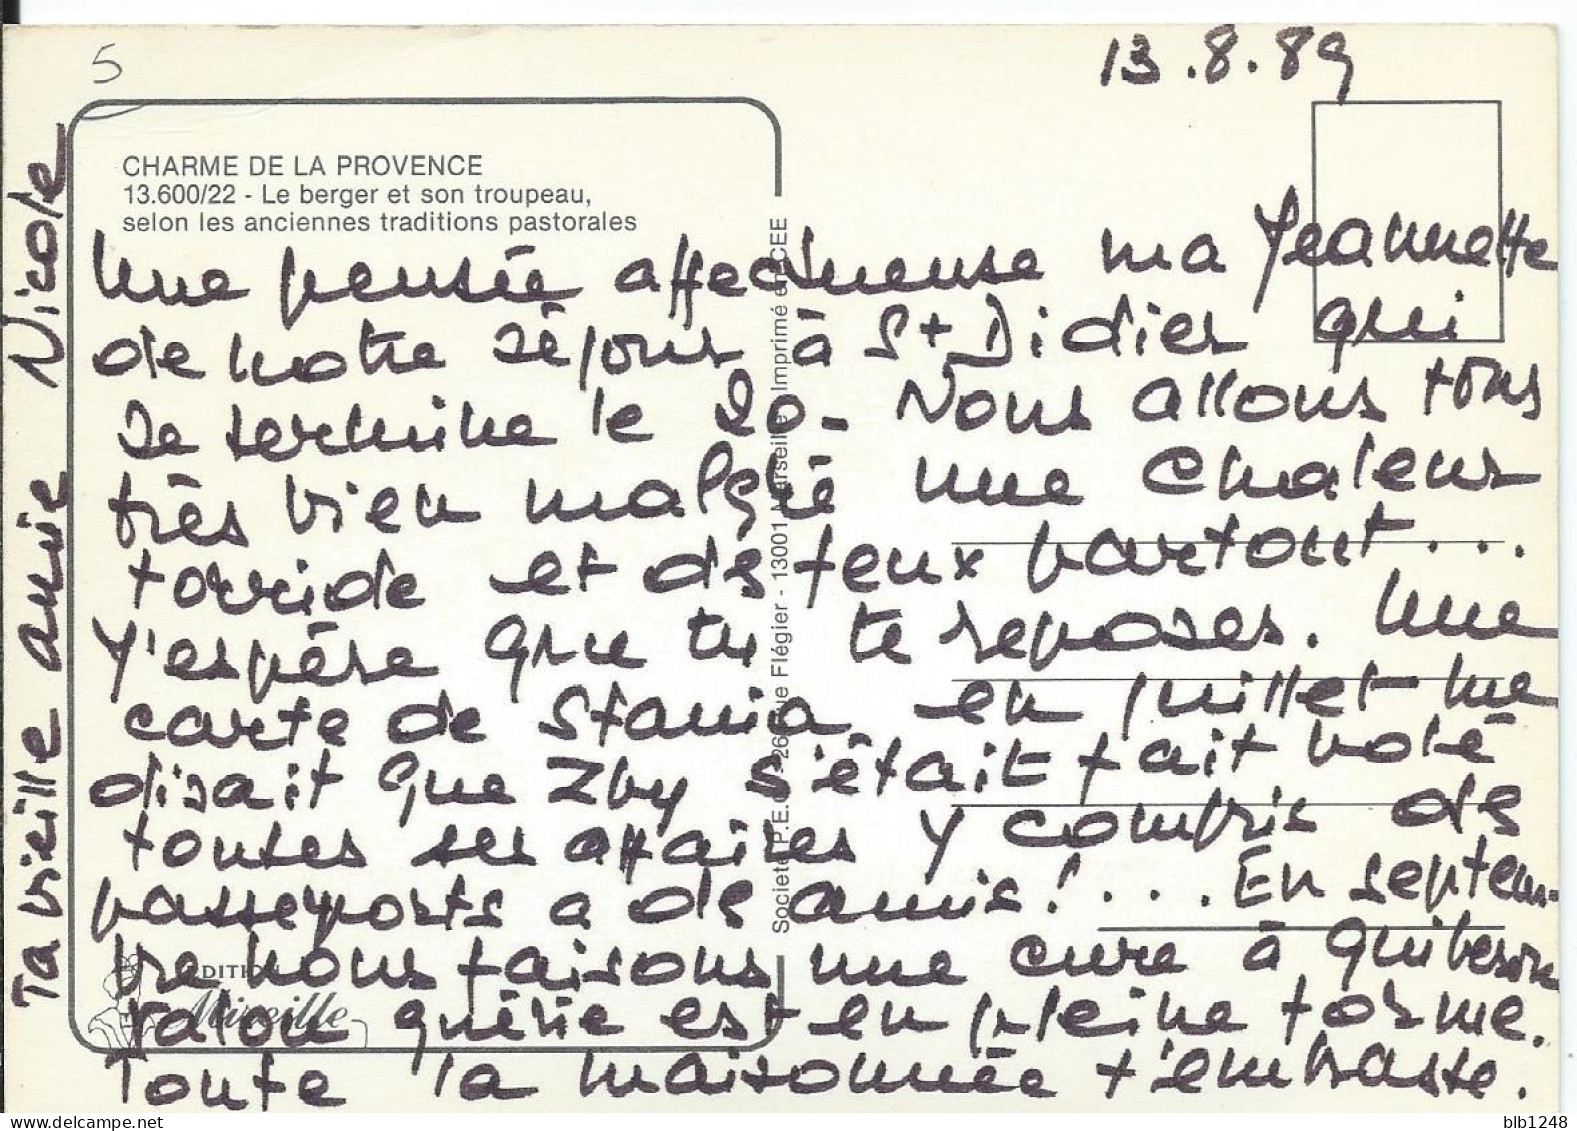 5
13.8.89
CHARME DE LA PROVENCE
13.600/22 - Le berger et son troupeau,
selon les anciennes traditions pastorales
Une pensée affectueuse ma Jeannette
de notre séjour à St Didier qui
se termine le 20 - Nous allons tous
très bien malgré une chaleur
torride et des feux partout...
J'espère que tu te reposes. Une
carte de Stania en juillet me
disait que Zby s'était fait volé
toutes ses affaires y compris des
passeports a des amis!... En septem-
bre nous faisons une cure à Quiberon
guérie est en pleine forme.
Toute la maisonnée t'embrasse.
Ta vieille amie Nicole
EDITION
Mireille
Société P.E.C. 26 rue Flégier - 13001 Marseille Imprimé en CEE
blb1248